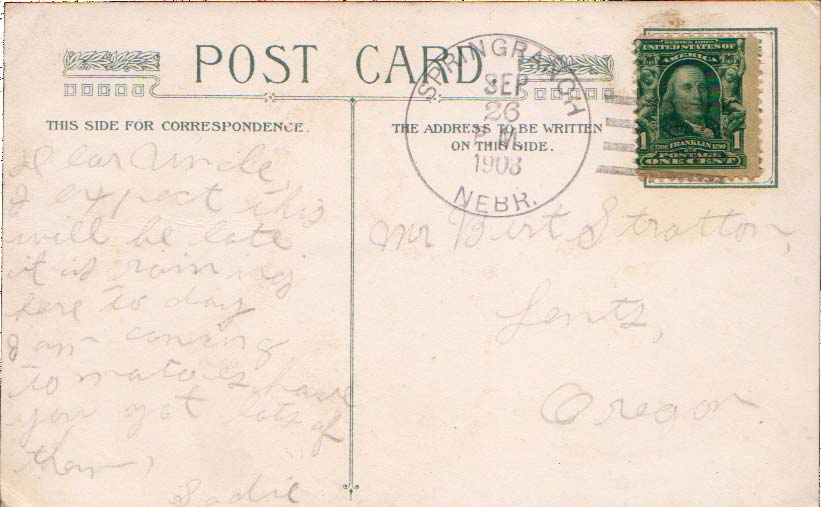 POST CARD
THIS SIDE FOR CORRESPONDENCE.
THE ADDRESS TO BE WRITTEN
ON THIS SIDE.
SPRINGRANCH
SEP
26
P.M.
1908
NEBR.
SERIES 1902
UNITED STATES OF
AMERICA
1 1
1706 FRANKLIN 1790
POSTAGE
ONE CENT
Dear Uncle,
I expect this
will be late
it is raining
here to day
I am caning
tomatoes have
you got lots of
them,
Sadie
Mr Burt Stratton,
Lents,
Oregon